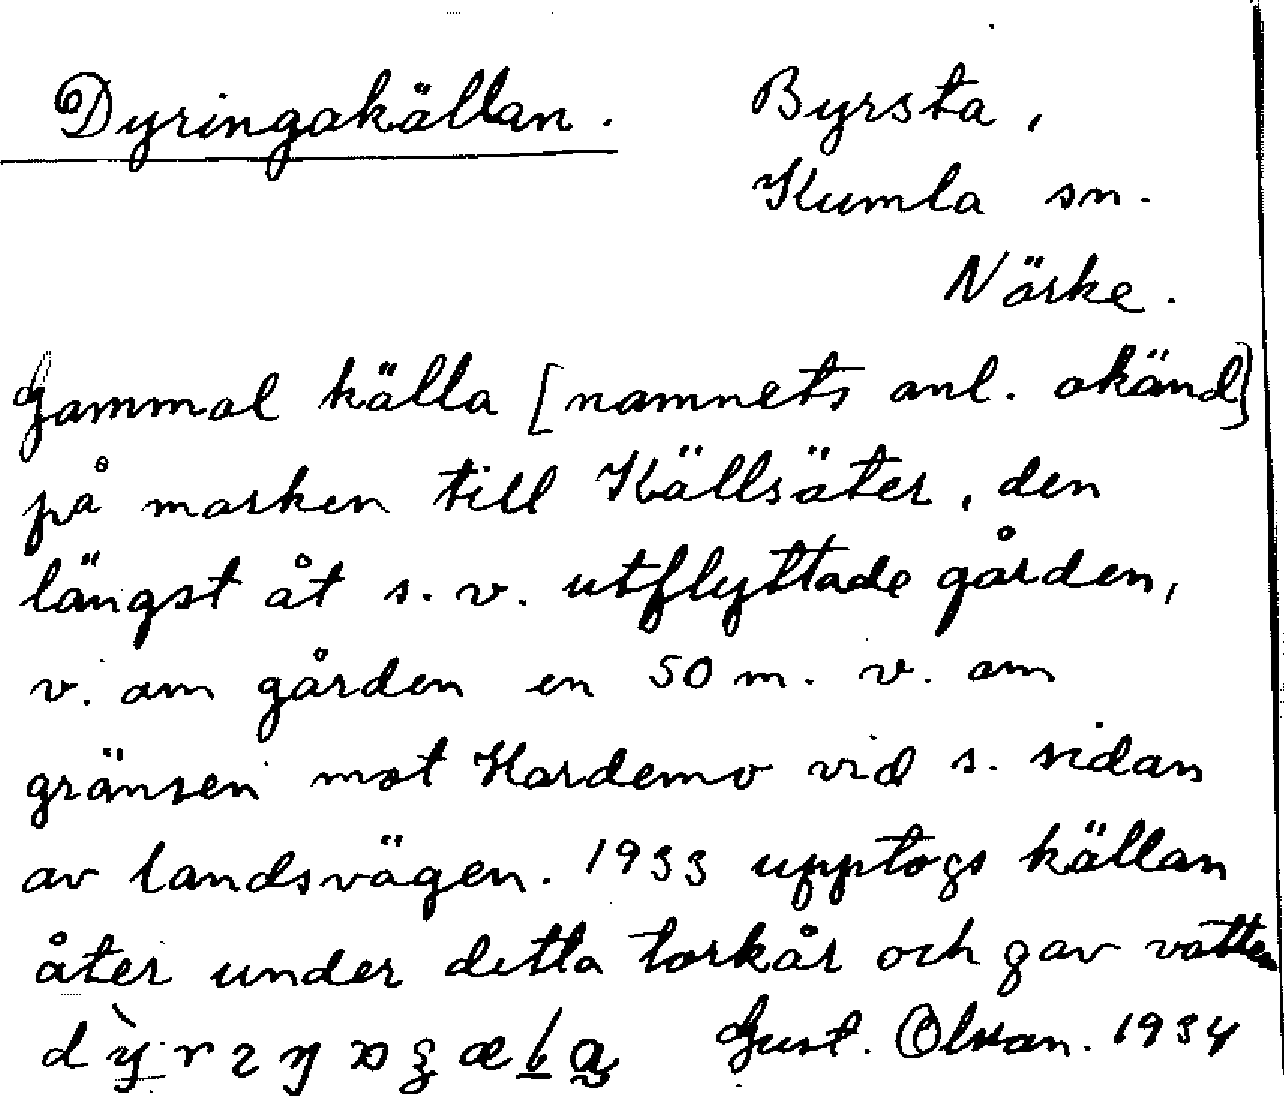 Dyringakällan. Byrsta,
Kumla sn.
Närke.
Gammal källa [namnets anl. okänd]
på marken till Källsäter, den
längst åt s.v. utflyttade gården,
v. om gården en 50 m. v. om
gränsen mot Hardemo vid s. sidan
av landsvägen. 1933 upptogs källan
åter under detta torkår och gav vatten
Gust. Olsson. 1934